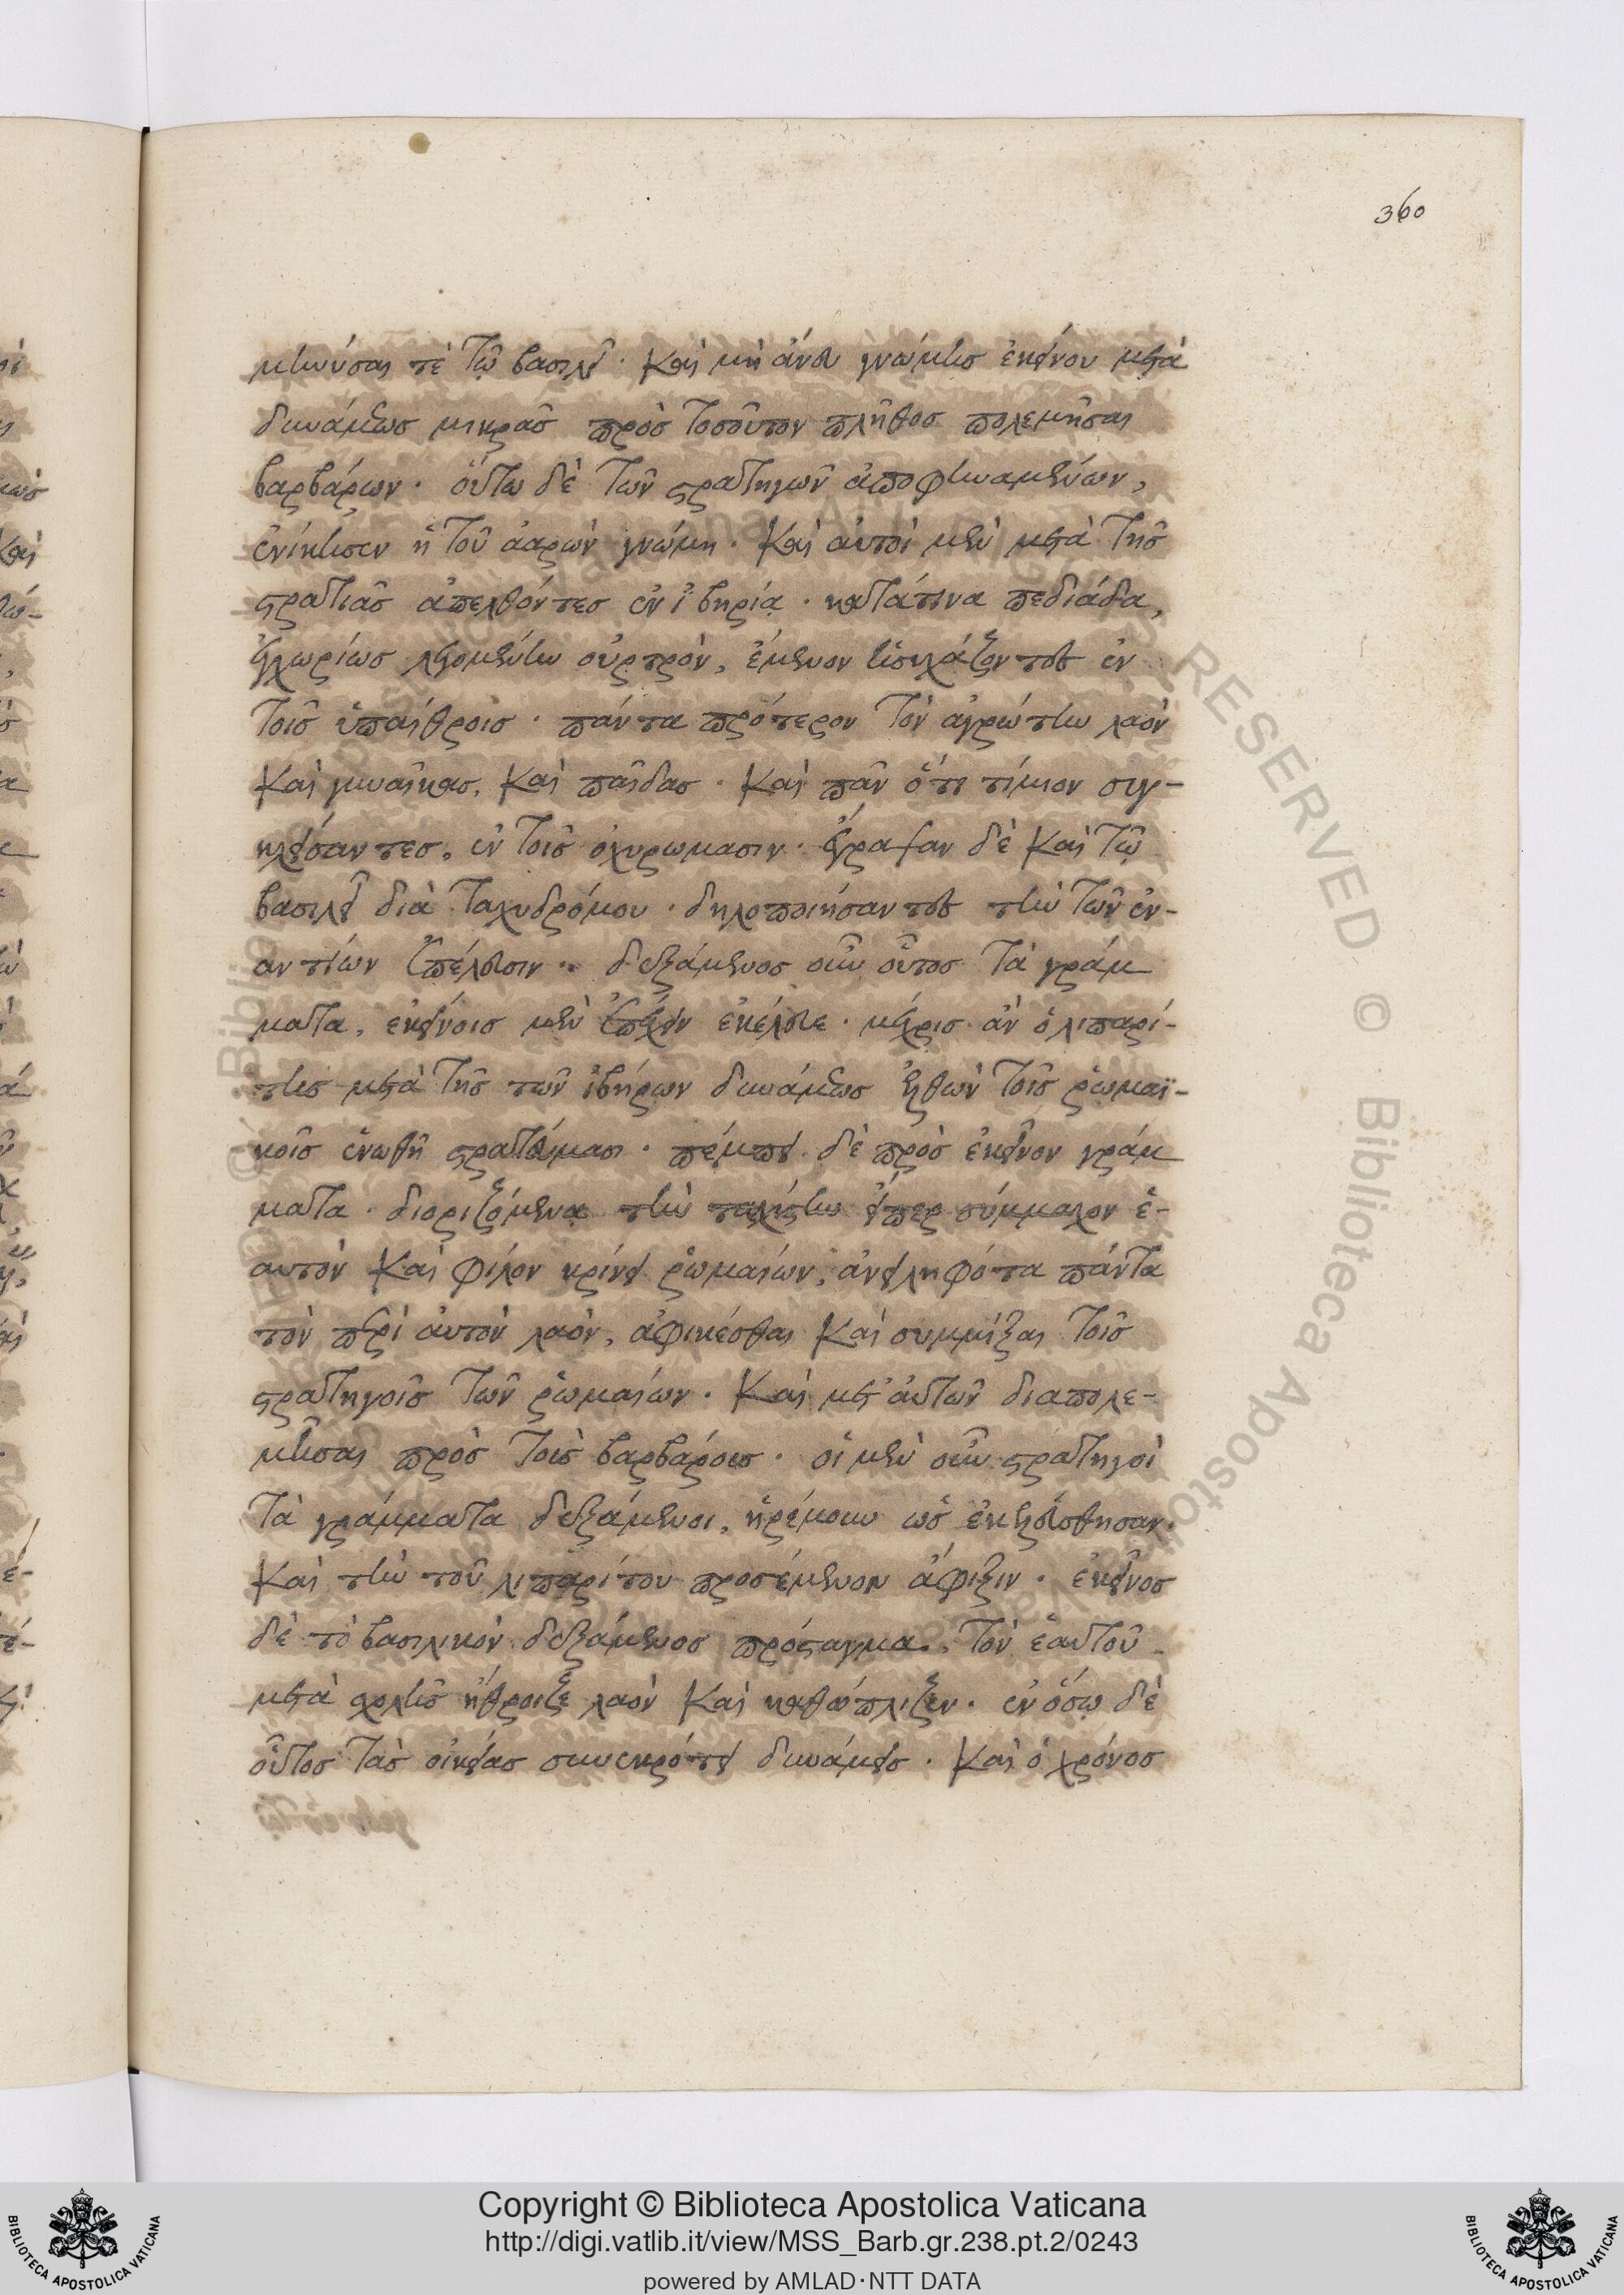 360
μηνύσαι τὲ τῷ βασιλεῖ· καὶ μὴ ἄνευ γνώμησ ἐκείνου μετὰ
δυνάμεωσ μικρᾶσ πρὸσ τοσοῦτον πλῆθοσ πολεμῆσαι
βαρβάρων· οὕτω δὲ τῶν στρατηγῶν ἀποφηναμένων,
ἐνίκησεν ἡ τοῦ ἀαρὼν γνώμη· καὶ αὐτοὶ μὲν μετὰ τῆσ
στρατιᾶσ ἀπελθόντεσ ἐν ἰβηρία· κατάτινα πεδιάδα,
ἐγχωρίωσ λεγομένην οὐρτρὸν, ἔμενον ἡσυχάζοντεσ ἐν
τοῖσ ὑπαίθροισ· πάντα πρότερον τὸν ἀγρώτην λαὸν
καὶ γυναῖκασ, καὶ παῖδασ· καὶ πᾶν ὅτι τίμιον συγ-
κλείσαντεσ, ἐν τοῖσ ὀχυρωμασιν· ἔγραψαν δὲ καὶ τῷ
βασιλεῖ διὰ ταχυδρόμου· δηλοποιήσαντεσ τὴν τῶν ἐν-
αντίων ἐπέλευσιν·. δεξάμενοσ οὖν οὗτοσ τὰ γράμ
ματα, ἐκείνοισ μὲν ἐπέχειν ἐκέλευε· μέχρισ ἂν ὁ λιπαρί-
τησ μετὰ τῆσ τῶν ἰβήρων δυνάμεωσ ἐξελθὼν τοῖσ ῥωμαϊ-
κοῖσ ἑνωθῆ στρατεύμασι· πέμπει δὲ πρὸσ ἐκεῖνον γράμ
ματα· διοριζόμενα τὴν ταχίστην εἴπερ σύμμαχον ἑ-
αυτὸν καὶ φίλον κρίνει ῥωμαίων, ἀνειληφότα πάντα
τὸν περὶ αὐτὸν λαὸν, ἀφικέσθαι καὶ συμμίξαι τοῖσ
στρατηγοῖσ τῶν ῥωμαίων· καὶ μετ' αὐτῶν διαπολε-
μῆσαι πρὸσ τοὺσ βαρβάρουσ· οἱ μὲν οὖν στρατηγοὶ
τὰ γράμματα δεξάμενοι, ἠρέμουν ὡσ ἐκελεύσθησαν·
καὶ τὴν τοῦ λιπαρίτου προσέμενον ἄφιξιν· ἐκεῖνοσ
δὲ τὸ βασιλικὸν δεξάμενοσ πρόσταγμα, τὸν ἑαυτοῦ
μετὰ σχολῆσ ἤθροιζε λαὸν καὶ καθώπλιζεν· ἐν ὅσῳ δὲ
οὗτοσ τὰσ οἰκείασ συνεκρότει δυνάμεισ· καὶ ὁ χρόνοσ
Copyright © Biblioteca Apostolica Vaticana
http://digi.vatlib.it/view/MSS_Barb.gr.238.pt.2/0243
powered by AMLAD·NTT DATA